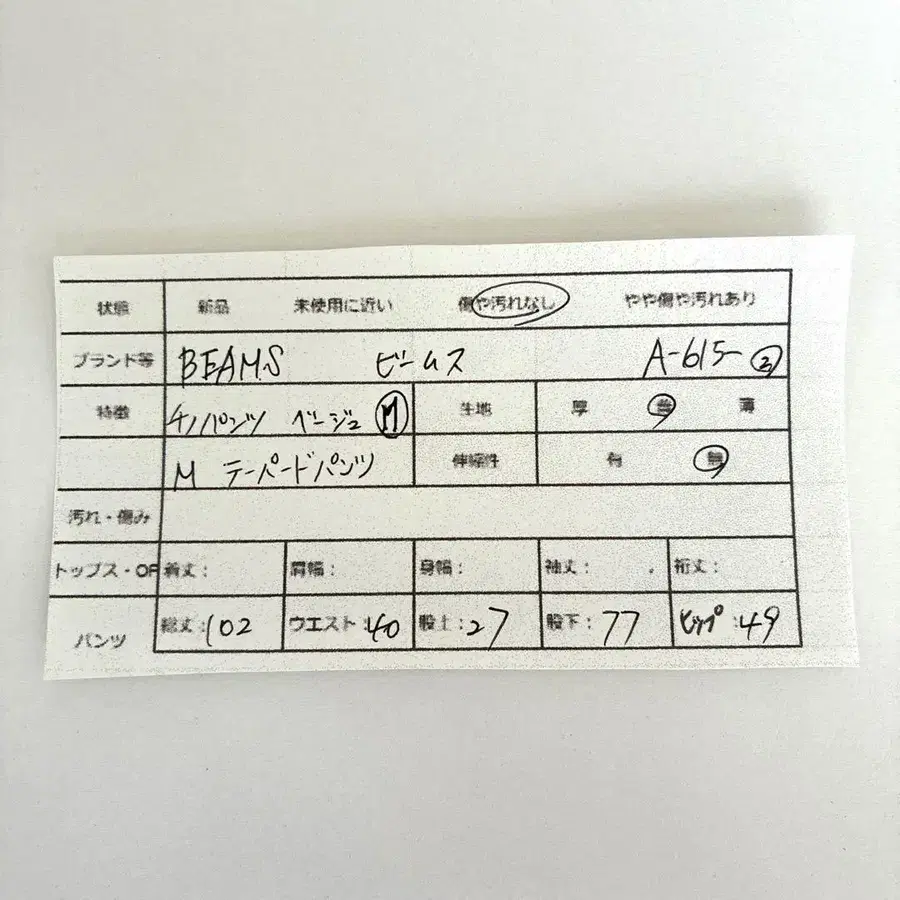 状態 新品 未使用に近い 傷や汚れなし やや傷や汚れあり
ブランド等 BEAMS ビームス A-615 ③
特徴 チノパンツ ベージュ Ⓜ 生地 厚 普 薄
M テーパードパンツ 伸縮性 有 無
汚れ・傷み
トップス・OP 着丈: 肩幅: 身幅: 袖丈: 裄丈:
パンツ 総丈:102 ウエスト:40 股上:27 股下:77 ヒップ:49